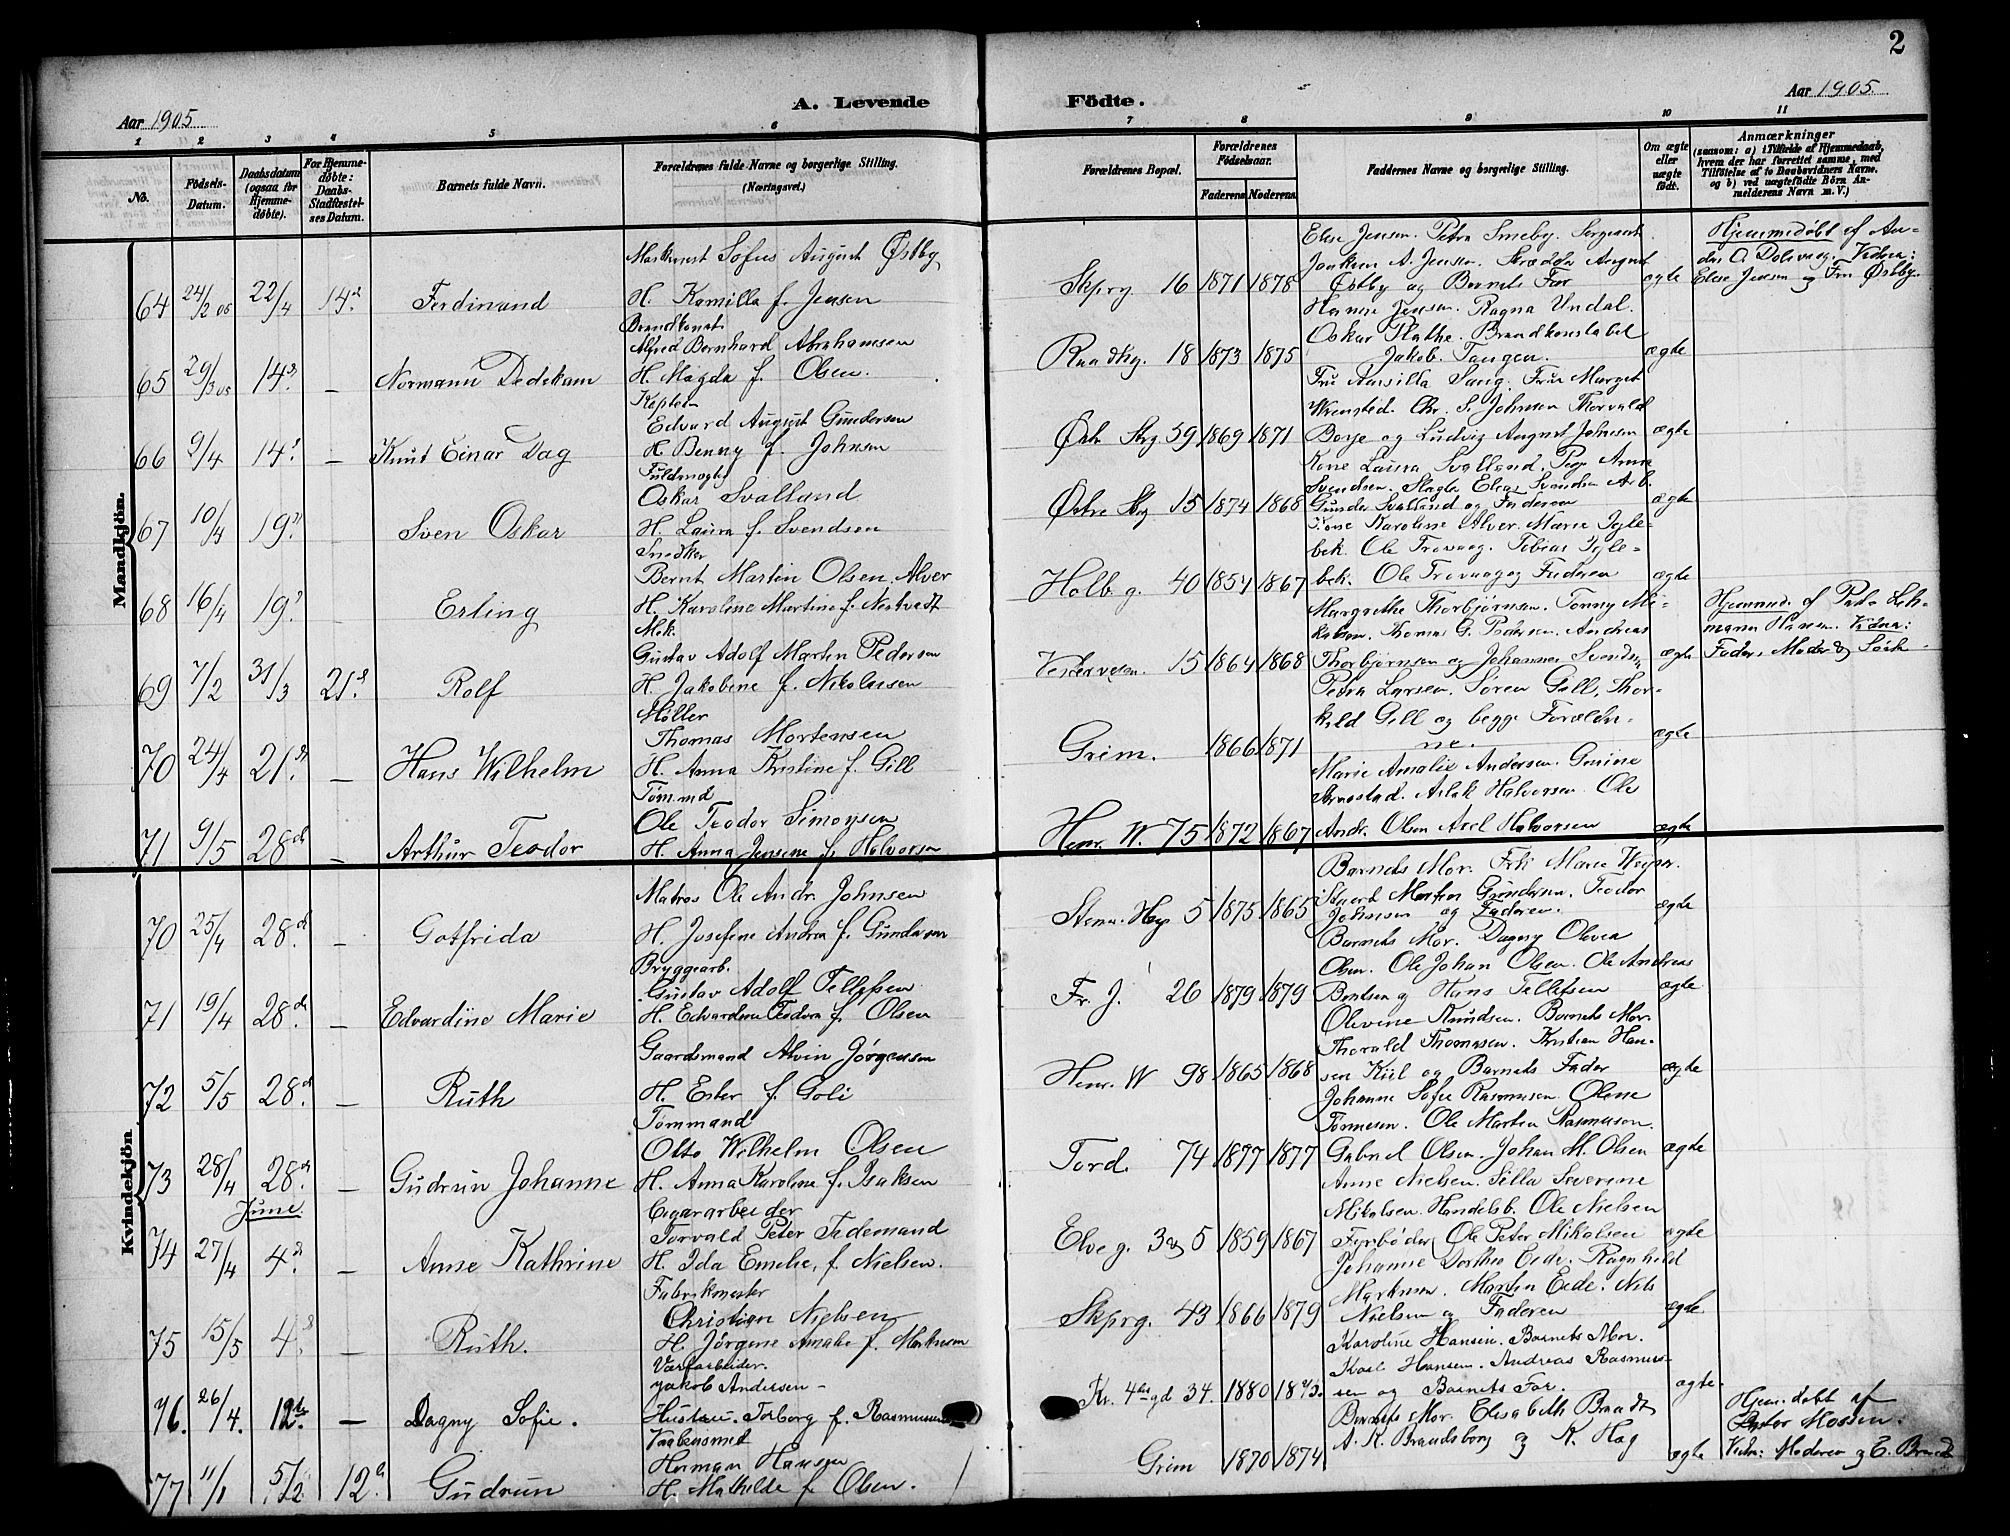 2
Aar 1905
A. Levende
Födte.
Aar 1905.
1 2 3 4 5 6 7 8 9 10 11
No.
Födsels-Datum.
Daabsdatum (ogsaa for Hjemme-döbte).
For Hjemme-døbte: Daabs-Stadfæstel-ses Datum.
Barnets fulde Navn.
Forældrenes fulde Navne og borgerlige Stilling. (Næringsvei.)
Forældrenes Bopæl.
Forældrenes Födselsaar.
Faderens Moderens
Faddernes Navne og borgerlige Stilling.
Om ægte eller uægte födt.
Anmærkninger
(saasom: a) i Tilfælde af Hjemmedaab, hvem der har forrettet samme, med Tilföielse af to Daabsvidners Navne. og b) ved uægtefödte Börn An-melderens Navn m. V.)
Mandkjön.
64 24/2 05 22/4 14 Ferdinand
Sofus August Østby
H. Kamilla f. Jensen
Skprg. 16 1871 1878
Elise Jensen. Petra Smeby. Sergeant
Joakim A. Jensen. Skrædder August
Østby og Barnets Far
ægte
Hjemmedøbt af An-
Elise Jensen og Fru Østby.
65 29/3 05 14 — Normann Dedekam
Alfred Bernhard Abrahamsen
H. Magda f. Olsen.
Raadhg. 18 1873 1875
Hanne Jensen. Ragna Undal.
Oskar Brandkonstabel
Jakob Tangen.
ægte
66 9/4 14 — Knut Einar Dag
Edvard August Gundersen
H. Benny f. Johnsen
Østre Strg 39 1869 1871
Chr. S. Johnsen Thorvald
Borje og Ludvig August Johnsen
ægte
67 10/4 19 — Sven Oskar
Fuldmægtig
Oskar Svalland
H. Laura f. Svendsen
Østre Strg 15 1874 1868
Kone Laura Svalland. Anna
Svendsen. Elias Svendsen Arb.
Gunder Svalland og Faderen
ægte
68 16/4 19 Erling
Snedker
Bernt Martin Olsen Alver
H. Karoline Martine f. Nestvedt
Holb g. 40 1854 1867
Kone Karoline Alver. Marie Igle-
bek. Ole Trovaag. Tobias Igle-
bek. Ole Trovaag og Faderen
ægte
69 7/2 31/3 21 Rolf
Mek.
Gustav Adolf Martin Pedersen
H. Jakobine f. Nikolaisen
Vesterveien. 15 1864 1868
Margrethe Thorbjørnsen. Tonny Mi-
kalsen. Thomas G. Pedersen. Andreas
Thorbjørnsen og Johannes Svendsen
ægte
70 24/4 21 — Hans Wilhelm
Møller
Thomas Mortensen
H. Anna Kristine f. Gill
Grim. 1866 1871
Petra Larsen. Søren Gill, Thor-
kild Gill og begge Forældre-
ne.
ægte
71 9/5 28 — Arthur Teodor
Tømmd
Ole Teodor Simonsen
H. Anna Jensine f. Halvorsen
Henr. W. 75 1872 1867
Marie Amalie Andersen.
Aslak Halvorsen Ole
Andr. Olsen Axel Halvorsen
ægte
Kvindekjön
70 25/4 28 — Gotfrida
Matros Ole Andr. Johnsen
H. Josefine Andrea f. Gundersen
5 1875 1865
Barnets Mor. Marie
Teodor
Johnsen og Faderen.
ægte
71 19/4 28 — Edvardine Marie
Bryggearb.
Gustav Adolf Tellefsen
H. Edvardine Teodora f. Olsen
Fr. J. 26 1879 1879
Barnets Mor. Dagny Olivia
Olsen. Ole Johan Olsen. Ole Andreas
Hans Tellefsen
ægte
72 5/5 28 — Ruth
Gaardsmand Alvin Jørgensen
H. Ester f. Goli
Henr. W 98 1865 1868
Olevine Knudsen. Barnets Mor.
Thorvald Thomasen. Kristian Han-
sen Kiil og Barnets Fader
ægte
73 28/4 28 — Gudrun Johanne
Tømmand
Otto Wilhelm Olsen
H. Anna Karoline f. Isaksen
Tord. 74 1877 1877
Johanne Sofie Rasmusen. Olene
Tønnesen. Ole Martin Rasmusen.
Gabriel Olsen. Johan M. Olsen
ægte
June
74 27/4 4 — Anne Kathrine
Cigararbeider
Torvald Peter Tidemand
H. Ida Emelie f. Nielsen.
Elve g. 3 og 5 1859 1867
Anne Nielsen. Silla Severine
Mikalsen. Handelsb. Ole Nielsen
Fyrbøder Ole Peter Mikalsen
ægte
75 15/5 4 — Ruth.
Fabrikmester
Christian Nielsen
H. Jörgine Amalie f. Markusen
Skprg. 43 1866 1879
Johanne Dorthea Eide. Ragnhild
Markusen. Martin Eide. Nils
Nielsen og Faderen
ægte
76. 26/4. 12te — Dagny Sofie.
Værfarbeider.
Jakob Andersen –
Hustru. Torborg f. Rasmussen
Kr. 4des gd 34. 1880
Karoline Hansen. Barnets Mor.
Karl Hansen. Andreas Rasmus-
sen og Barnets Far.
ægte.
77 11/1 5/2 12 Gudrun
Herman Hansen
H. Mathilde f. Olsen.
Grim 1870 1874
Barnets Mor. Elisabeth Brandt
A. K. Brandsborg og K. Hag
ægte
Hjem. døbt af
Pastor Mossen.
Vidn: Moderen og E. Brandt